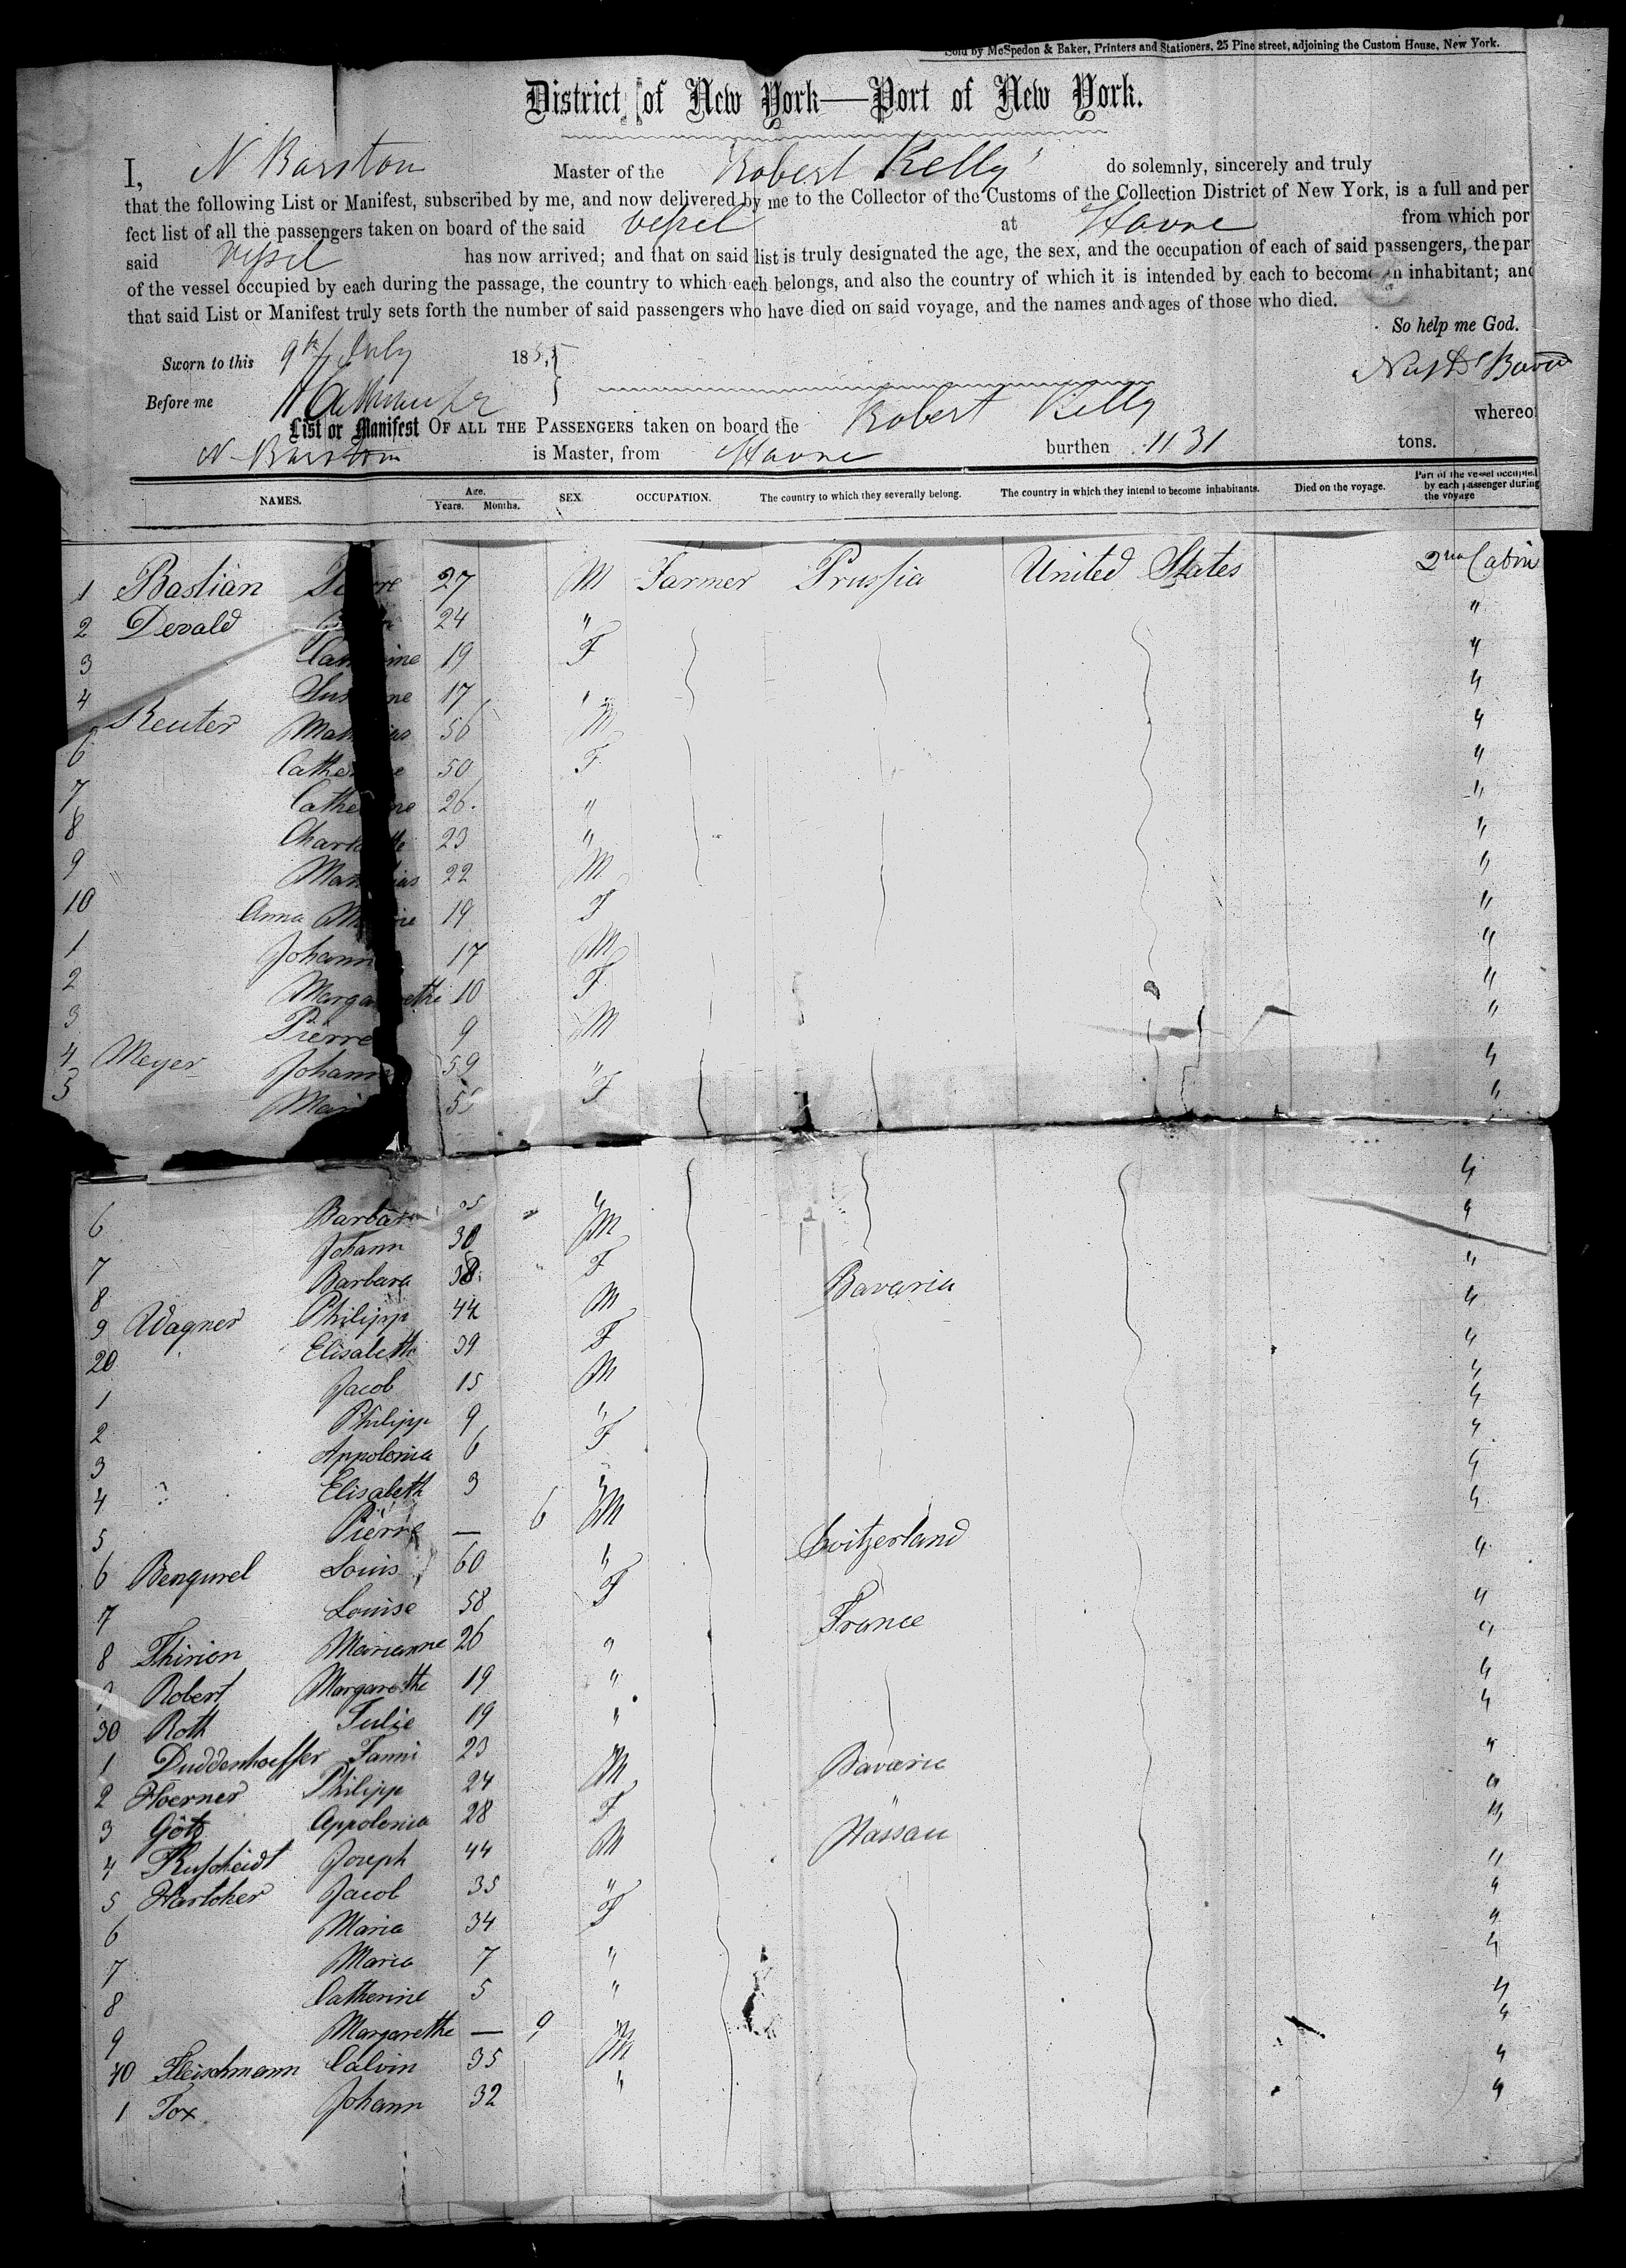 Sold by McSpedon & Baker, Printers and Stationers, 25 Pine street, adjoining the Custom House, New York.
District of New York—Port of New York.
I, N Barstow Master of the Robert Kelly do solemnly, sincerely and truly
that the following List or Manifest, subscribed by me, and now delivered by me to the Collector of the Customs of the Collection District of New York, is a full and per
fect list of all the passengers taken on board of the said vessel at Havre from which por
said vessel has now arrived; and that on said list is truly designated the age, the sex, and the occupation of each of said passengers, the par
of the vessel occupied by each during the passage, the country to which each belongs, and also the country of which it is intended by each to become an inhabitant; and
that said List or Manifest truly sets forth the number of said passengers who have died on said voyage, and the names and ages of those who died.
So help me God.
Sworn to this 9th July 185
Before me
List or Manifest OF ALL THE PASSENGERS taken on board the Robert Kelly whereo
N Barstow is Master, from Havre burthen 1131 tons.
NAMES. Age. Years. Months. SEX. OCCUPATION. The country to which they severally belong. The country in which they intend to become inhabitants. Died on the voyage. Part of the vessel occupied by each passenger during the voyage
1 Bastian Pierre 27 M Farmer Prussia United States 2nd Cabin
2 Devald 24 " "
3 Catherine 19 F "
4 Susanne 17 " "
Reuter Mathias 56 M "
6 Catherine 50 F "
7 Catherine 26 " "
8 Charlotte 23 " "
9 Mathias 22 M "
10 Anna Marie 19 F "
1 Johann 17 M "
2 Margarethe 10 F "
3 Pierre 9 M "
4 Meyer Johann 59 " "
5 Mari 5 F "
6 Barbara " "
7 Johann 30 M "
8 Barbara F "
9 Wagner Philipp 44 M Bavaria "
20 Elisabeth 39 F "
1 Jacob 15 M "
2 Philipp 9 " "
3 Appolonia 6 F "
4 Elisabeth 3 " "
5 Pierre — 6 M "
6 Bengurel Louis 60 " Switzerland "
7 Louise 58 F "
8 Thirion Marianne 26 " France "
9 Robert Margarethe 19 " "
30 Roth Julie 19 " "
1 Duddenhoeffer Fanni 23 " "
2 Hoerner Philipp 24 M Bavaria "
3 Götz Appolonia 28 F " "
4 Joseph 44 M Nassau "
5 Hartcher Jacob 35 " "
6 Maria 34 F "
7 Maria 7 " "
8 Catherine 5 " "
9 Margarethe — 9 " "
40 Fleischmann Calvin 35 M "
1 Fox Johann 32 " "